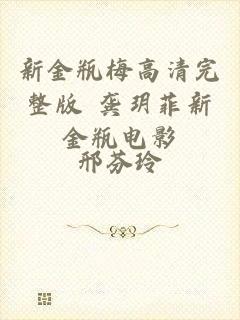 新金瓶梅高清完
整版 龚玥菲新
金瓶电影
邢芬玲